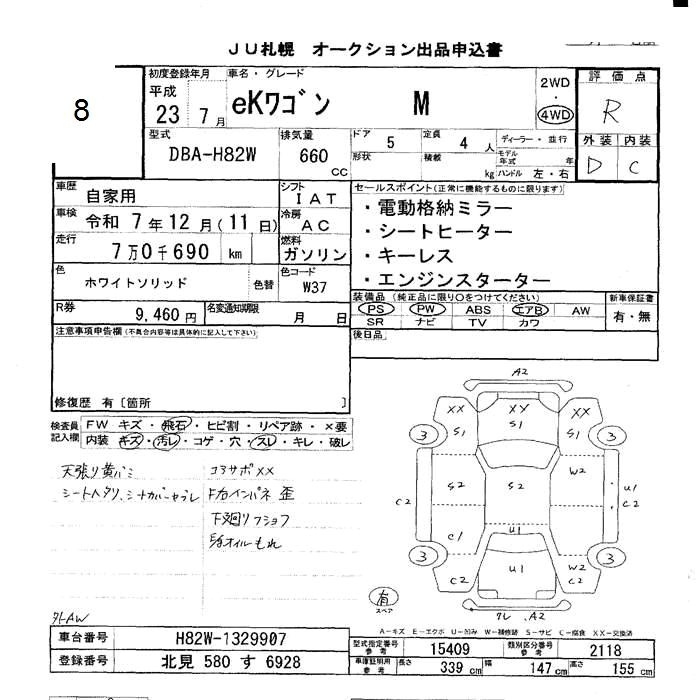 JU札幌 オークション出品申込書
8
初度登録年月 車名・グレード 2WD ・ 4WD 評価点
平成 23 7月 eKワゴン M R
型式 排気量 ドア 5 定員 4人 ディーラー・並行 外装 内装
DBA-H82W 660 CC 形状 積載 kg モデル年式 年 ハンドル 左・右 D C
車歴 自家用 シフト IAT セールスポイント(正常に機能するものに限ります)
車検 令和 7年 12月(11日) 冷房 AC ・電動格納ミラー
走行 7万0千690 km 燃料 ガソリン ・シートヒーター
・キーレス
色 ホワイトソリッド 色替 色コード W37 ・エンジンスターター
R券 9,460円 名変通知期限 月 日 装備品 (純正品に限り○をつけてください) 新車保証書
PS PW ABS エアB AW 有・無
SR ナビ TV カワ
注意事項申告欄(不具合内容等は具体的に記入して下さい) 後日品
修復歴 有〔箇所 〕
検査員記入欄 FW キズ・飛石・ヒビ割・リペア跡・×要
内装 キズ・汚レ・コゲ・穴・スレ・キレ・破レ
天張り黄バミ コアサポXX
シートヘタリ、
歪
下廻り
オイルもれ
外AW
A2
XX XX XX
S1 S1 S1
3 3
C2 S2 S2 W2 U1 C2
C1 U1 W2
3 U1 3
C2 C2
有 スペア
A2
A-キズ E-エクボ U-凹み W-補修跡 S-サビ C-腐食 XX-交換済
車台番号 H82W-1329907 型式指定番号 参考 15409 類別区分番号 参考 2118
登録番号 北見 580 す 6928 車庫証明用 参考 長さ 339 cm 幅 147 cm 高さ 155 cm